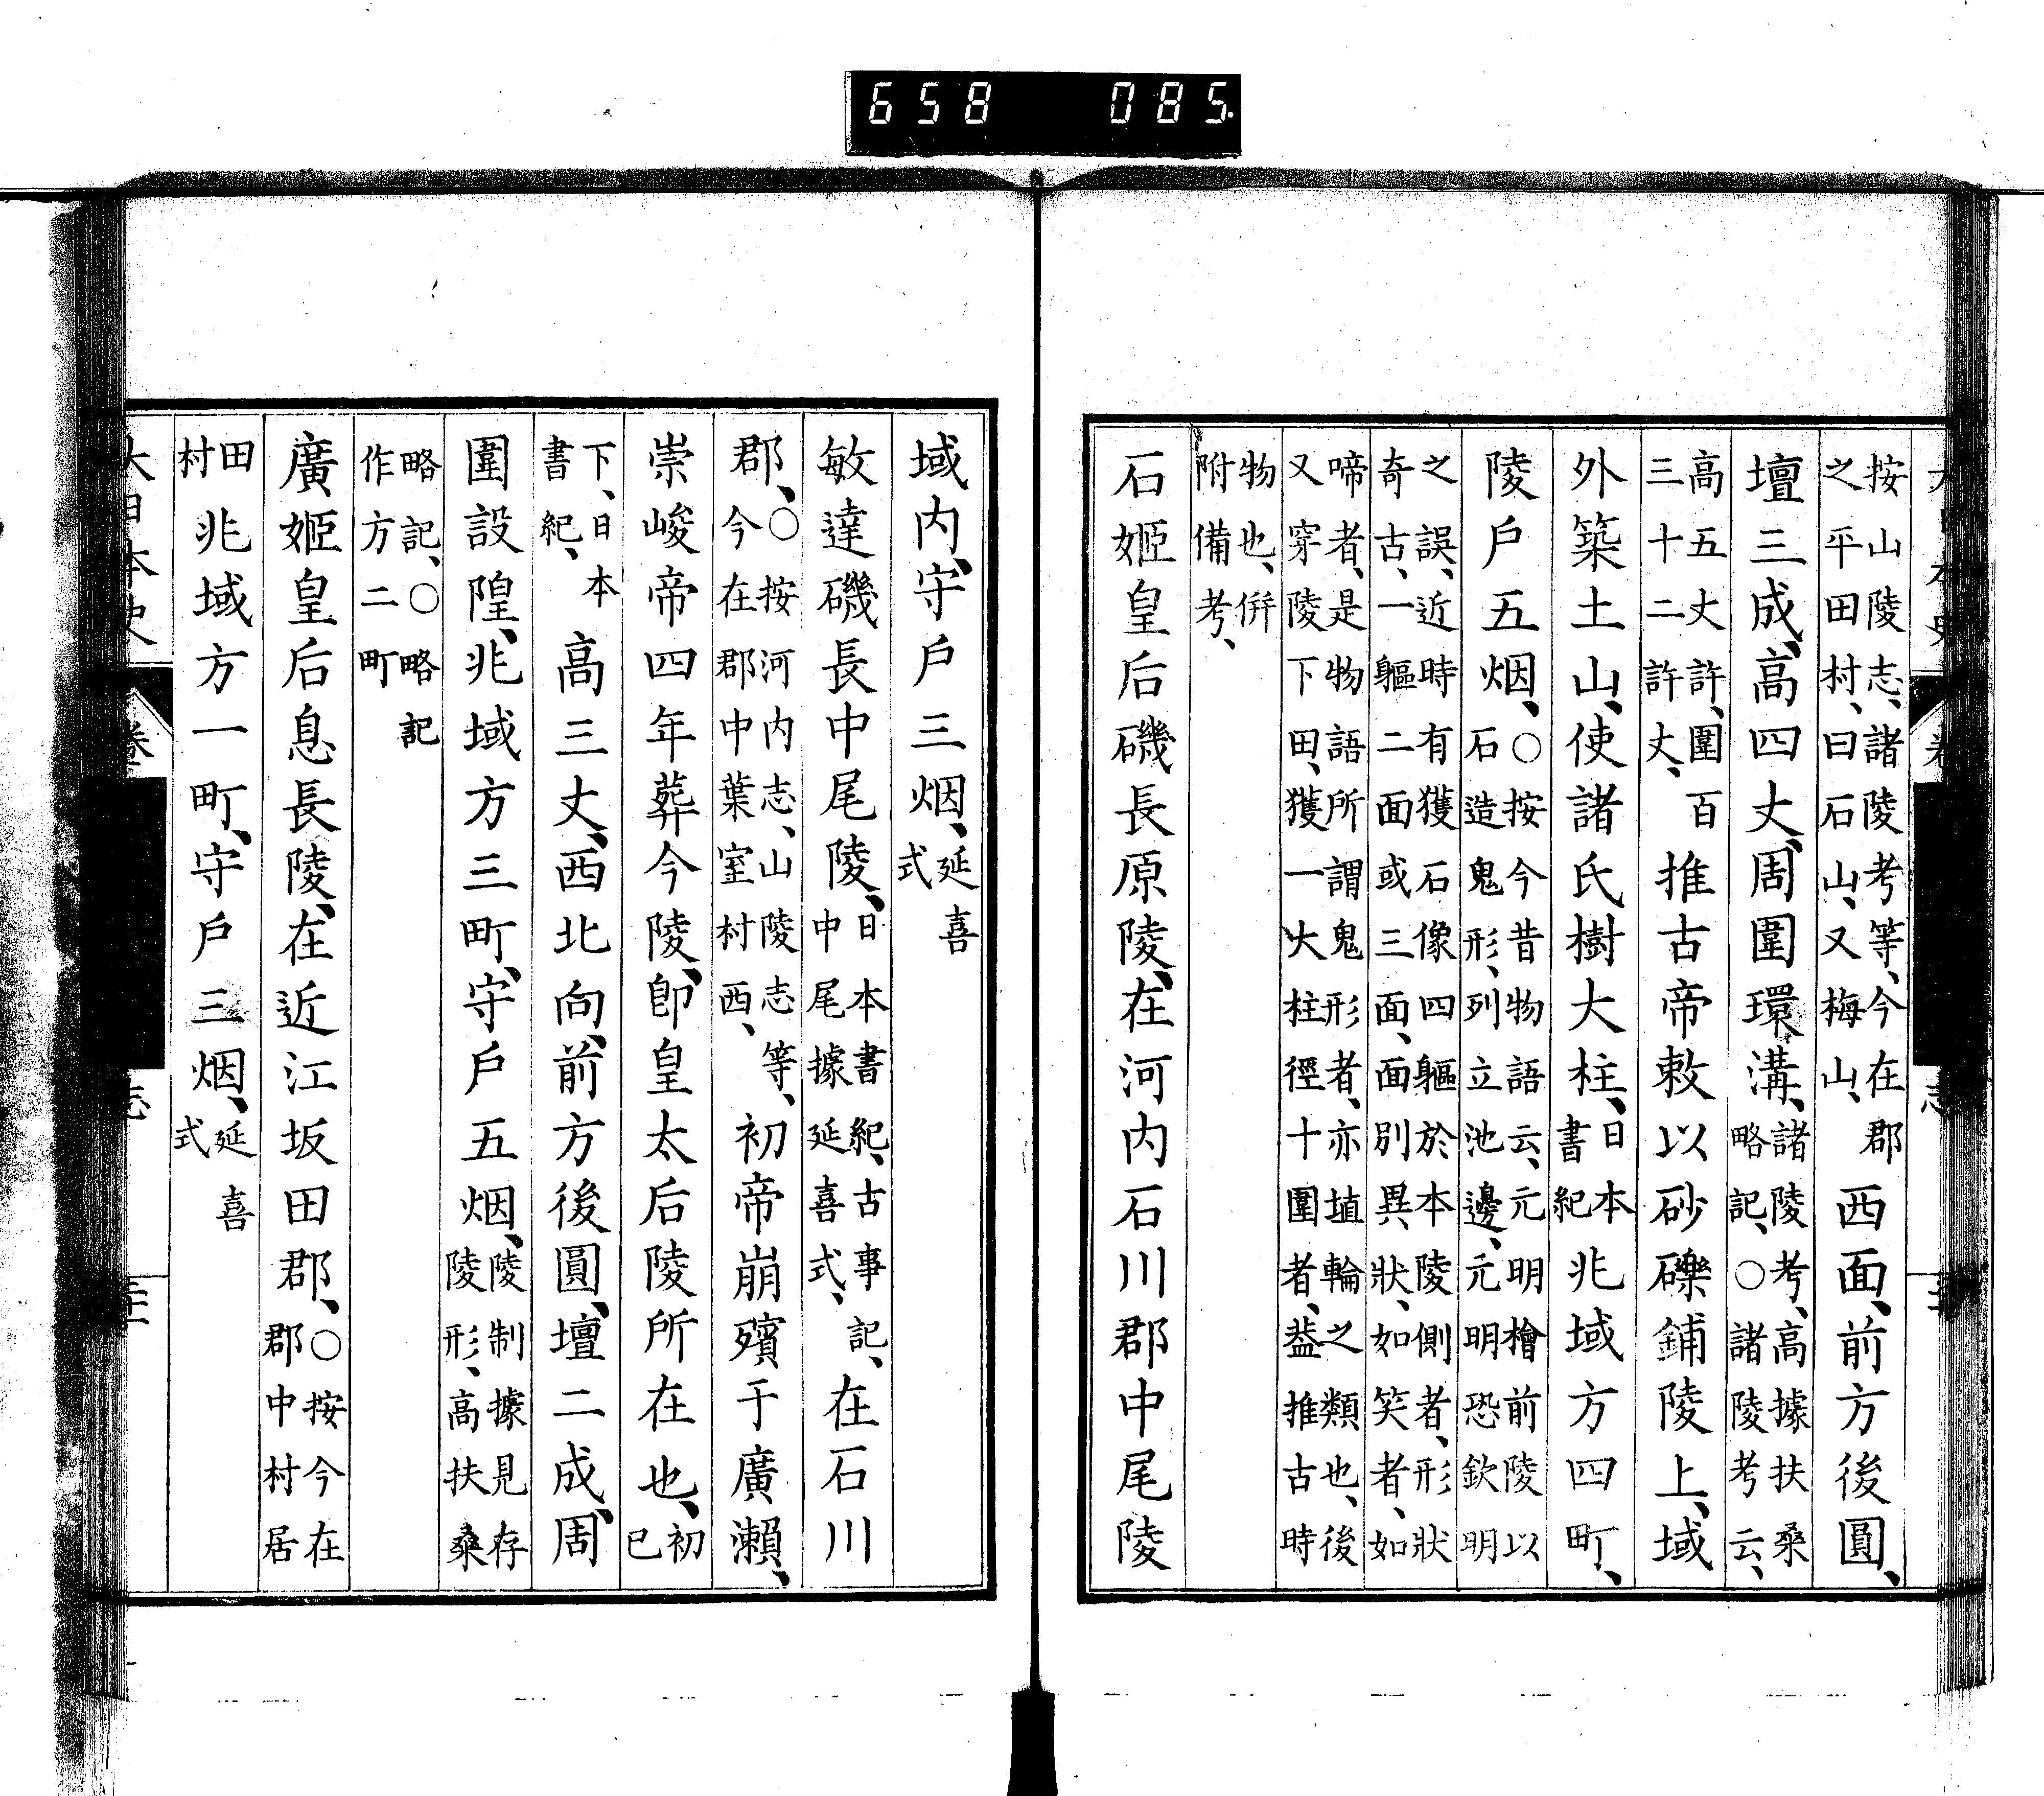 658 085.
按山陵志、諸陵考等、今在郡
之平田村、曰石山、又梅山、
西面、前方後圓、
壇三成、高四丈、周圍環溝、
諸陵考、高據扶桑
略記、○諸陵考云、
高五丈許、圍百
三十二許丈、
推古帝敕以砂礫鋪陵上、域
外築土山、使諸氏樹大柱、
日本
書紀
兆域方四町、
陵戶五烟、
○按今昔物語云、元明檜前陵以
石造鬼形、列立池邊、元明恐欽明
之誤、近時有獲石像四軀於本陵側者、形狀
奇古、一軀二面或三面、面別異、狀、如笑者、如
啼者、是物語所謂鬼形者、亦埴輪之類也、後
又穿陵下田、獲一大柱徑十圍者、蓋推古時
物也、併
附備考、
石姬皇后磯長原陵、在河內石川郡中尾陵
域內、守戶三烟、
延喜
式
敏達磯長中尾陵、
日本書紀、古事記、
中尾據延喜式、
在石川
郡、
○按河內志、山陵志等、
今在郡中葉室村西、
初帝崩殯于廣瀨、
崇峻帝四年葬今陵、卽皇太后陵所在也、
初
已
下、日本
書紀、
高三丈、西北向、前方後圓、壇二成、周
圍設隍、兆域方三町、守戶五烟、
陵制據見存
陵形、高扶桑
略記、○略記
作方二町
廣姬皇后息長陵、在近江坂田郡、
○按今在
郡中村居
田
村
兆域方一町、守戶三烟、
延喜
式
大日本史
卷
志